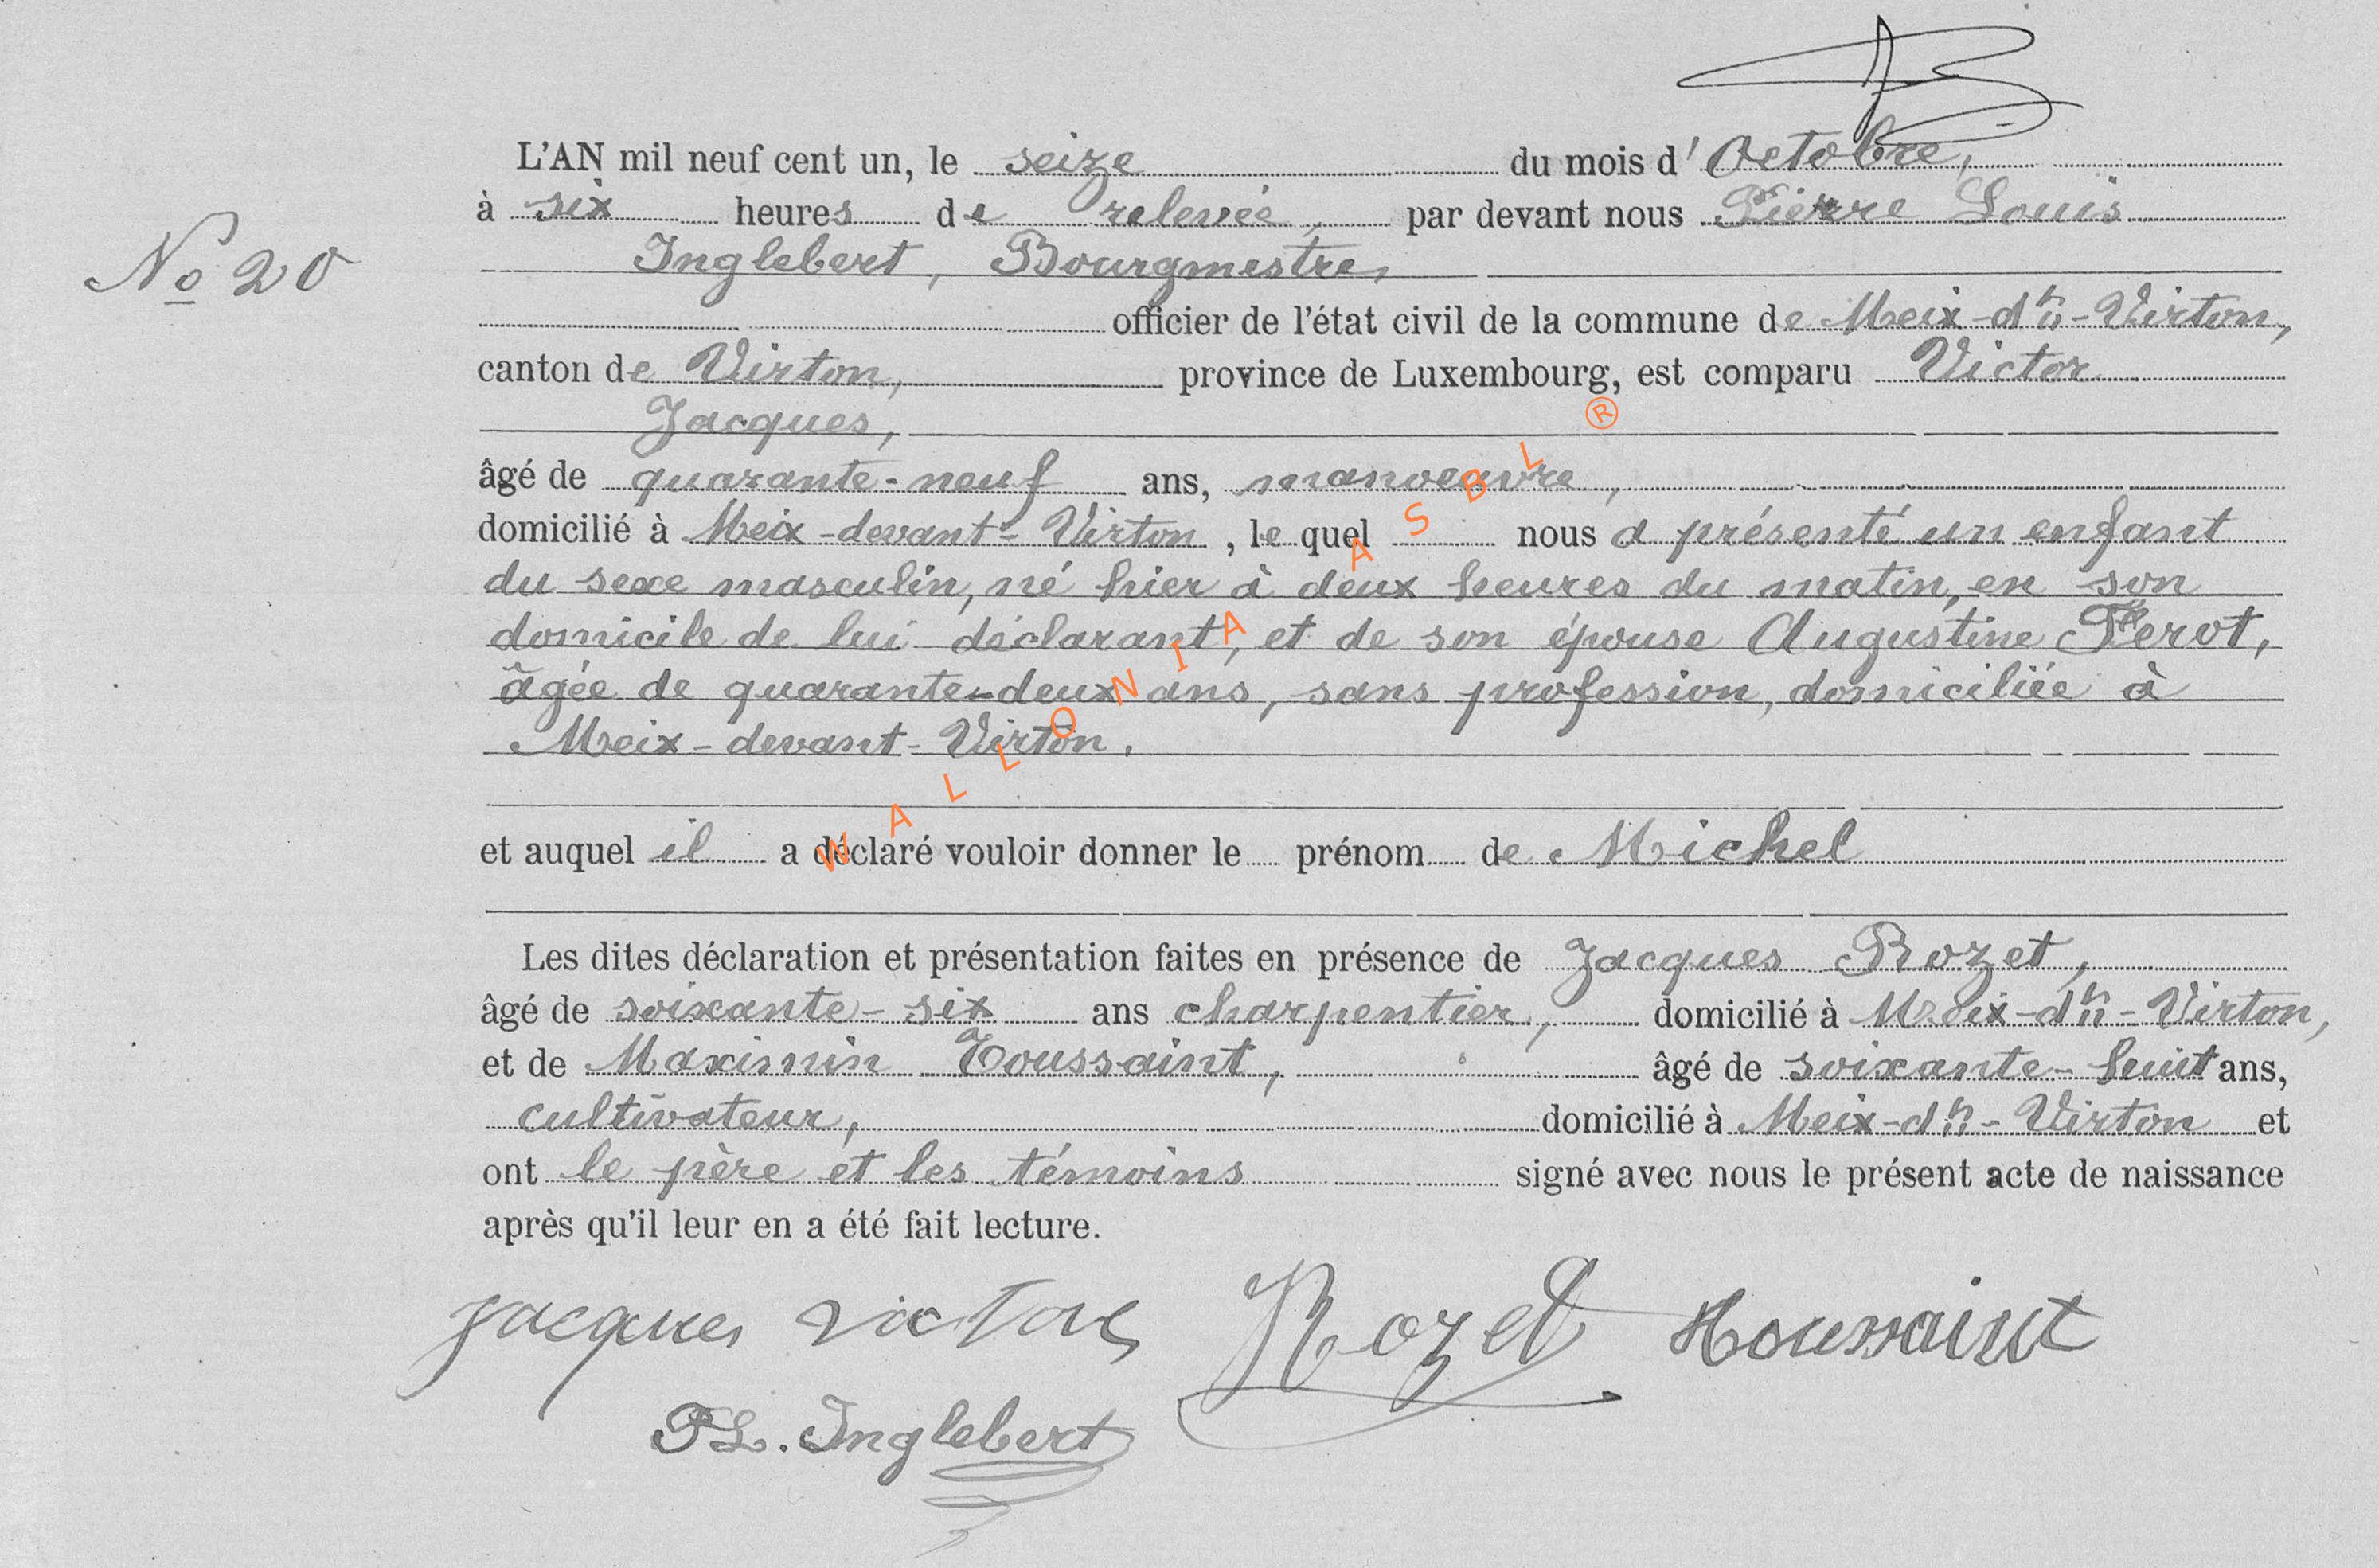 L'AN mil neuf cent un, le seize du mois d'Octobre,
à six heures de relevée, par devant nous Pierre Louis
Inglebert, Bourgmestre,
No 20
officier de l'état civil de la commune de Meix-dt-Virton,
canton de Virton, province de Luxembourg, est comparu Victor
Jacques,
âgé de quarante-neuf ans, manoeuvre,
domicilié à Meix-devant-Virton, le quel nous a présenté un enfant
du sexe masculin, né hier à deux heures du matin, en son
domicile de lui déclarant, et de son épouse Augustine
âgée de quarante-deux ans, sans profession, domiciliée à
Meix-devant-Virton.
et auquel il a déclaré vouloir donner le prénom de Michel
Les dites déclaration et présentation faites en présence de Jacques Rozet,
âgé de soixante-six ans charpentier, domicilié à Meix-dt-Virton,
et de Maximin Toussaint, âgé de soixante-huit ans,
cultivateur, domicilié à Meix-dt-Virton et
ont le père et les témoins signé avec nous le présent acte de naissance
après qu'il leur en a été fait lecture.
Jacques Victor Rozet Toussaint
PL. Inglebert
WALLONIA ASBL ®